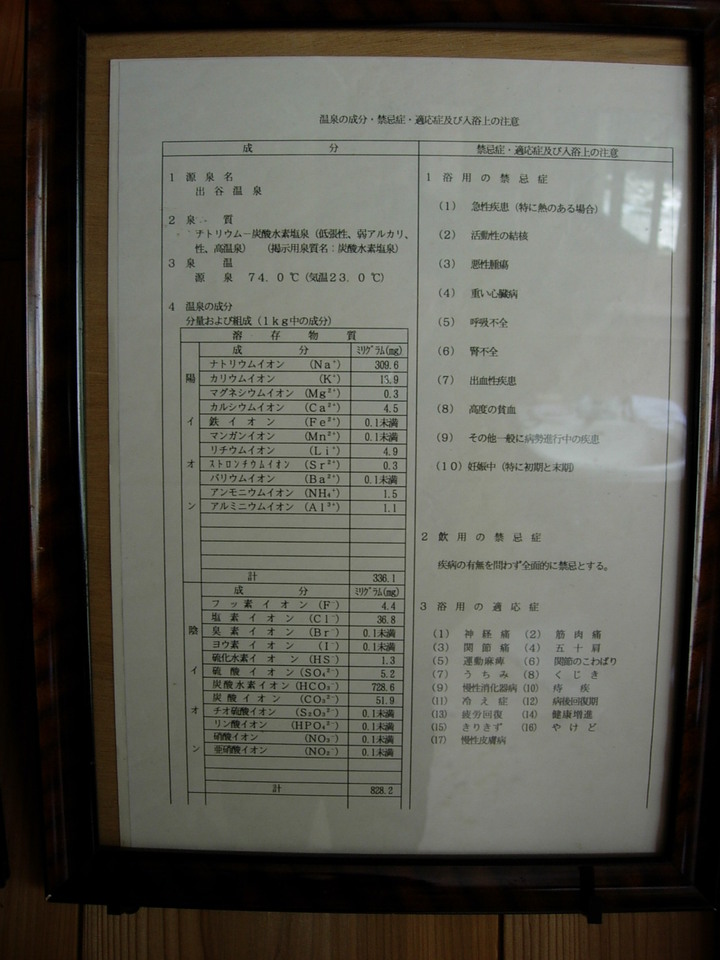 温泉の成分・禁忌症・適応症及び入浴上の注意
成 分
1 源泉名
出谷温泉
2 泉 質
ナトリウム−炭酸水素塩泉（低張性、弱アルカリ、
性、高温泉） （掲示用泉質名：炭酸水素塩泉）
3 泉 温
源 泉 74.0℃（気温23.0℃）
4 温泉の成分
分量および組成（1kg中の成分）
溶 存 物 質
陽イオン
成 分 ﾐﾘｸﾞﾗﾑ(mg)
ナトリウムイオン （Na⁺） 309.6
カリウムイオン （K⁺） 13.9
マグネシウムイオン （Mg²⁺） 0.3
カルシウムイオン （Ca²⁺） 4.5
鉄イオン （Fe²⁺） 0.1未満
マンガンイオン （Mn²⁺） 0.1未満
リチウムイオン （Li⁺） 4.9
ｽﾄﾛﾝﾁｳﾑｲｵﾝ （Sr²⁺） 0.3
バリウムイオン （Ba²⁺） 0.1未満
アンモニウムイオン （NH₄⁺） 1.5
アルミニウムイオン （Al³⁺） 1.1
計 336.1
陰イオン
成 分 ﾐﾘｸﾞﾗﾑ(mg)
フッ素イオン （F⁻） 4.4
塩素イオン （Cl⁻） 36.8
臭素イオン （Br⁻） 0.1未満
ヨウ素イオン （I⁻） 0.1未満
硫化水素イオン （HS⁻） 1.3
硫酸イオン （SO₄²⁻） 5.2
炭酸水素イオン （HCO₃⁻） 728.6
炭酸イオン （CO₃²⁻） 51.9
チオ硫酸イオン （S₂O₃²⁻） 0.1未満
リン酸イオン （HPO₄²⁻） 0.1未満
硝酸イオン （NO₃⁻） 0.1未満
亜硝酸イオン （NO₂⁻） 0.1未満
計 828.2
禁忌症・適応症及び入浴上の注意
1 浴用の禁忌症
（1） 急性疾患（特に熱のある場合）
（2） 活動性の結核
（3） 悪性腫瘍
（4） 重い心臓病
（5） 呼吸不全
（6） 腎不全
（7） 出血性疾患
（8） 高度の貧血
（9） その他一般に病勢進行中の疾患
（10）妊娠中（特に初期と末期）
2 飲用の禁忌症
疾病の有無を問わず全面的に禁忌とする。
3 浴用の適応症
（1） 神経痛 （2） 筋肉痛
（3） 関節痛 （4） 五十肩
（5） 運動麻痺 （6） 関節のこわばり
（7） うちみ （8） くじき
（9） 慢性消化器病 （10） 痔疾
（11） 冷え症 （12） 病後回復期
（13） 疲労回復 （14） 健康増進
（15） きりきず （16） やけど
（17） 慢性皮膚病